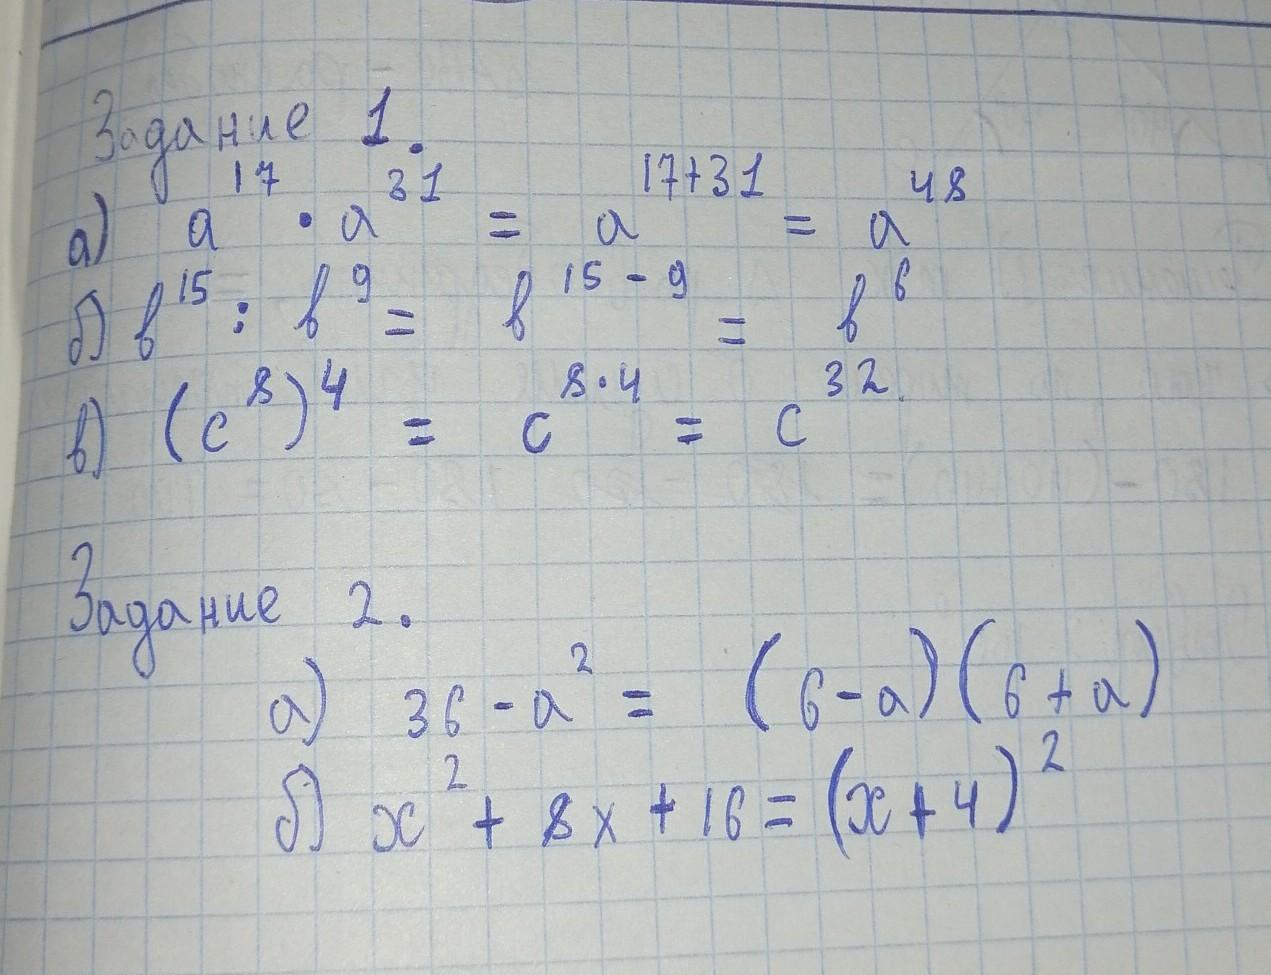 Задание 1.
а) a¹⁷ · a³¹ = a¹⁷⁺³¹ = a⁴⁸
б) b¹⁵ : b⁹ = b¹⁵⁻⁹ = b⁶
в) (c⁸)⁴ = c⁸·⁴ = c³²
Задание 2.
а) 36 - a² = (6-a)(6+a)
б) x² + 8x + 16 = (x+4)²